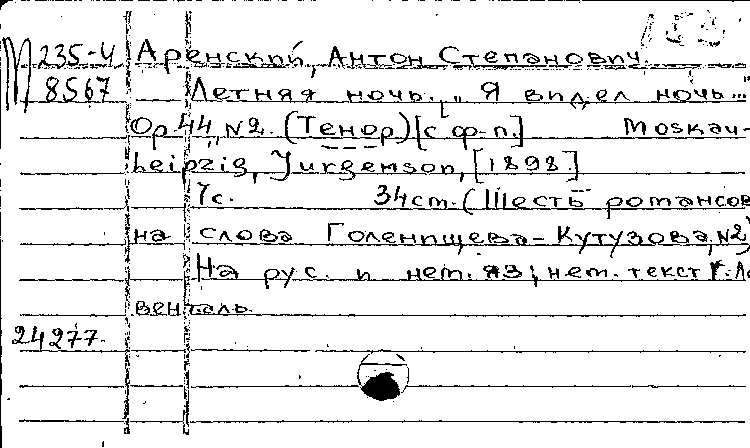 М 235-4 Аренский, Антон Степанович.
8567 Летняя ночь. „Я видел ночь..."
Op 44, N2. (Тенор) [с ф-п.] Moskau-
Leipzig, Jurgenson, [1898.]
7с. 34 cm. (Шесть романсов
на слова Голенищева-Кутузова, N2)
На рус. и нем. яз; нем. текст
венталь.
24277.